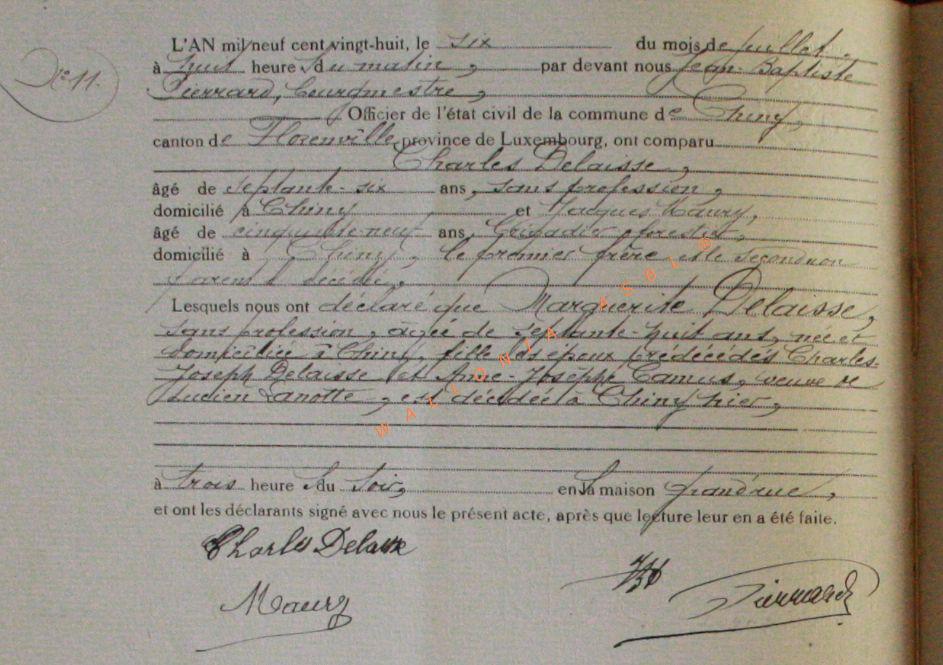 N° 11.
L'AN mil neuf cent vingt-huit, le six du mois de juillet,
à huit heures du matin, par devant nous Jean-Baptiste
Pierrard, bourgmestre,
Officier de l'état civil de la commune de Chiny,
canton de Florenville, province de Luxembourg, ont comparu
Charles Delaisse,
âgé de septante-six ans, sans profession,
domicilié à Chiny et Jacques Maury,
âgé de cinquante-neuf ans, brigadier forestier,
domicilié à Chiny, le premier frère et le second non
parent à décédée,
Lesquels nous ont déclaré que Marguerite Delaisse,
sans profession, agée de septante-huit ans, née et
domiciliée à Chiny, fille des époux prédécédés Charles-
Joseph Delaisse et Anne-Josèphe Camus, veuve de
Lucien Lanotte, est décédée à Chiny hier,
à trois heures du soir, en sa maison grandrue,
et ont les déclarants signé avec nous le présent acte, après que lecture leur en a été faite.
Charles Delaisse
Maury
Pierrard
WALLONIA ASBL